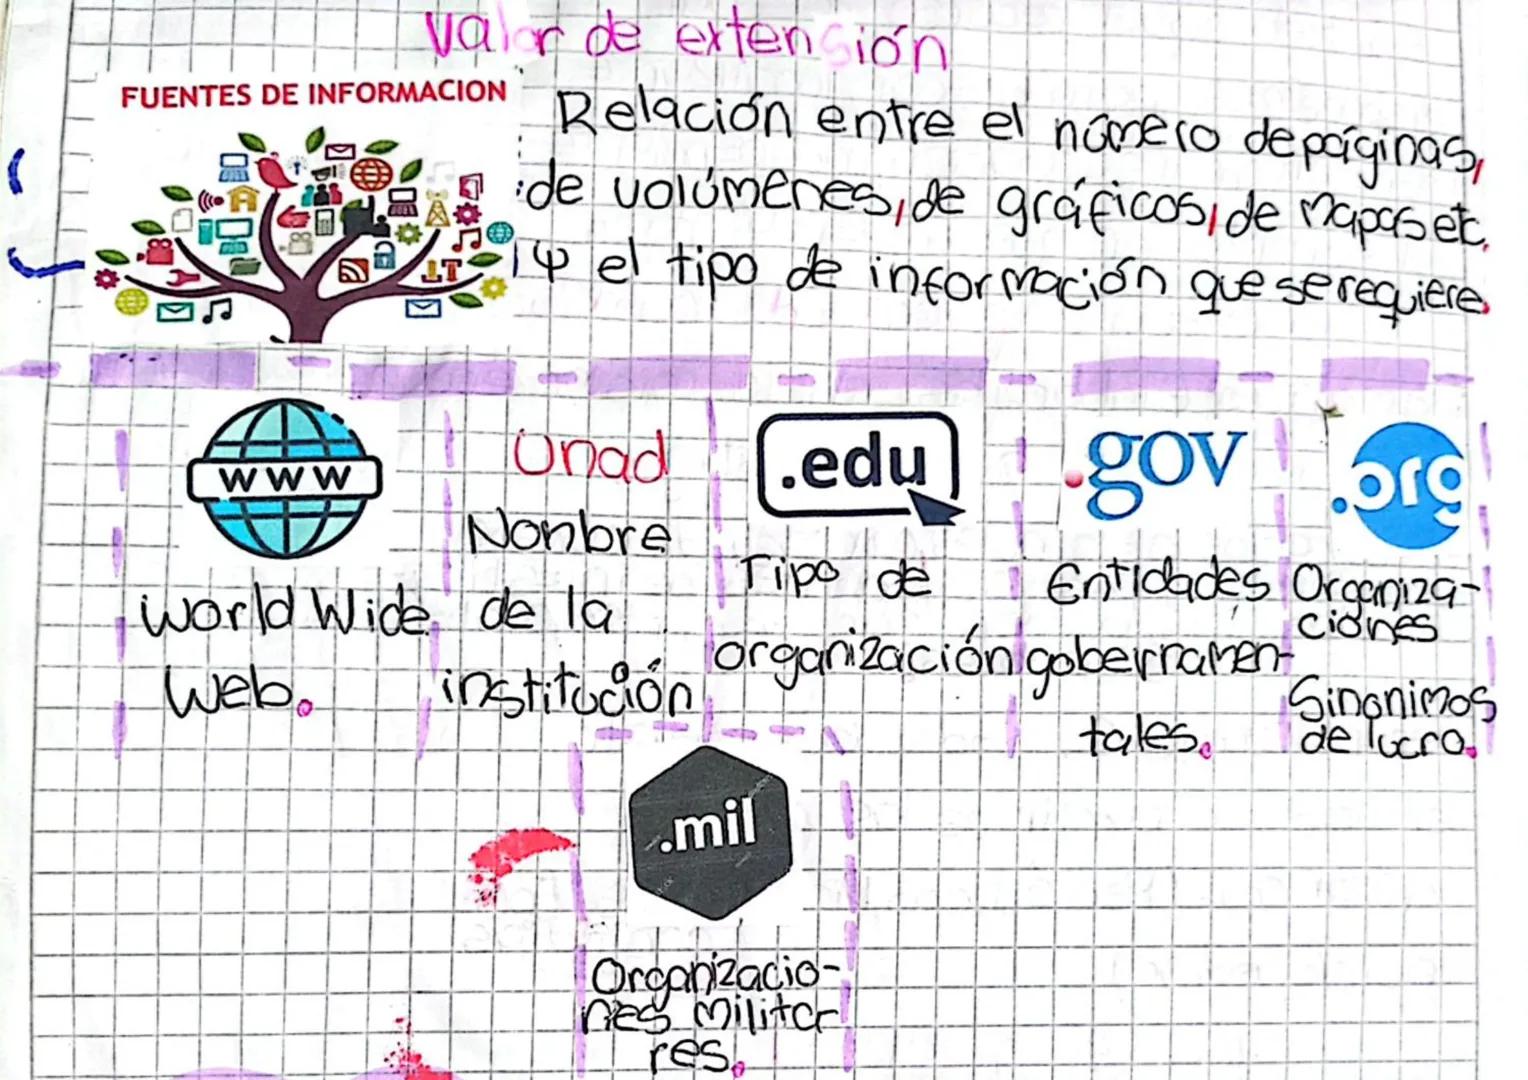 Valor de extensión
FUENTES DE INFORMACION
Relación entre el número de páginas,
de volúmenes, de gráficos, de mapas etc.
y el tipo de información que se requiere.
WWW
World Wide
Web.
Unad
Nonbre
de la
institución
.edu
Tipo de
organización
.gov
Entidades
gobernamen-
tales.
.org
Organiza-
ciones
Sinonimos
de lucro.
.mil
Organizacio-
nes militar
res.